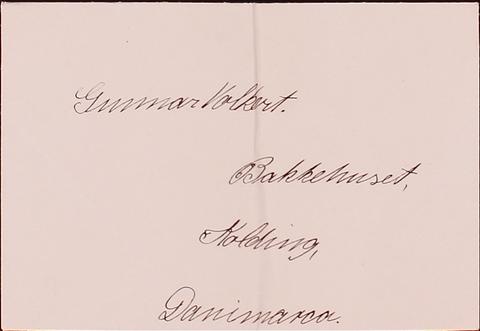 Gunnar Volkert.
Bakkehuset,
Kolding,
Danimarca.